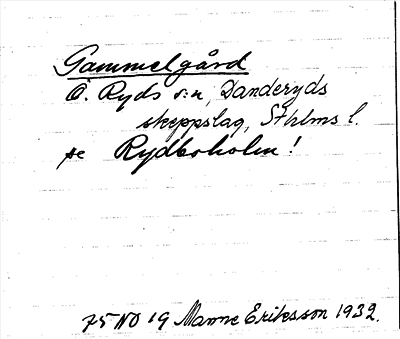 Gammelgård
Ö. Ryds s:n, Danderyds
skeppslag, Sthlms l.
se Rydboholm!
75 NO 19 Manne Eriksson 1932.